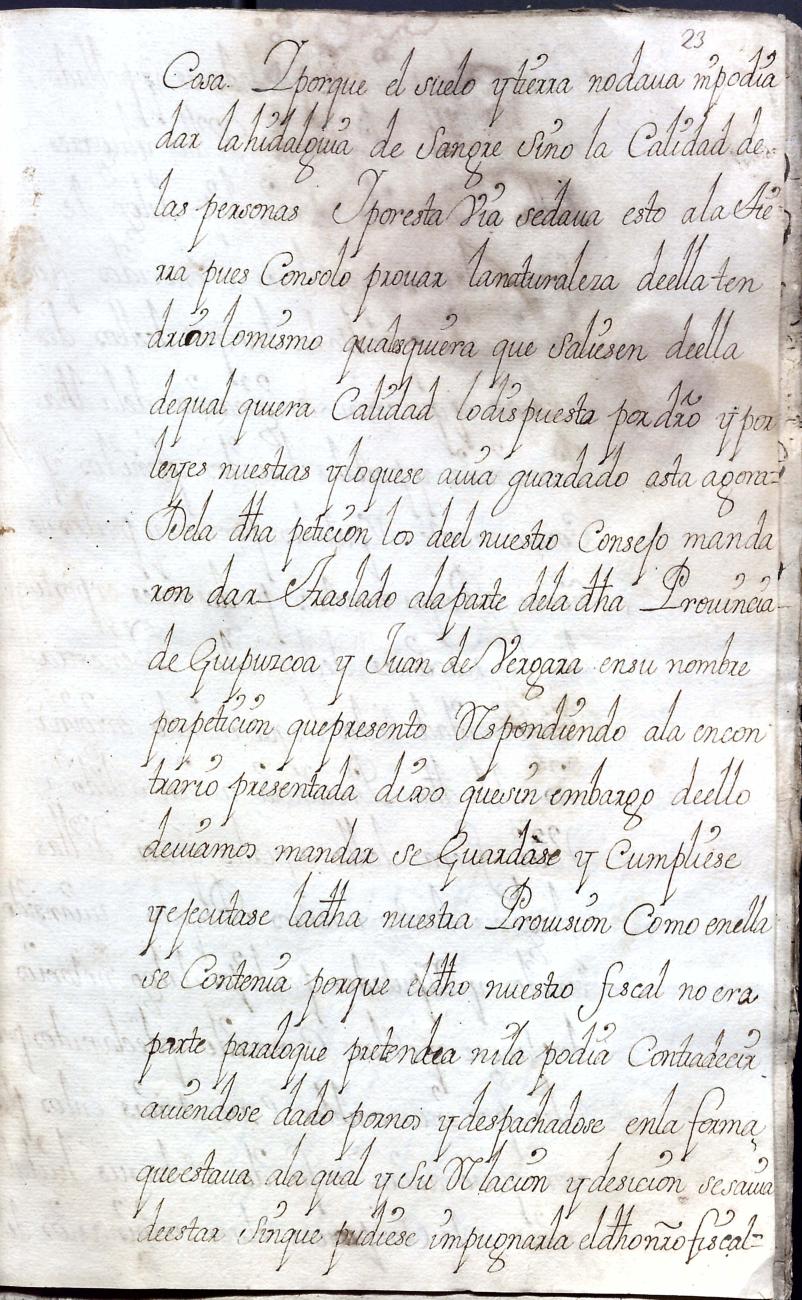 23
Cosa. Y porque el suelo y tierra no daua ni podia
dar la hidalguia de Sangre Sino la Calidad de
las personas Y por esta Via se daua esto a la tie
rra pues Con solo prouar la naturaleza de ella ten
drian lo mismo qualesquiera que Saliesen de ella
de qual quiera Calidad lo dispuesta por dr̃o y por
leyes nuestras y lo que se auia guardado asta agora=
De la dha peticion los de el nuestro Consejo manda
ron dar traslado a la parte de la dha Prouincia
de Guipuzcoa y Juan de Vergara en su nombre
por peticion que presento Respondiendo a la en con
trario presentada dixo que sin embargo de ello
deuiamos mandar se Guardase y Cumpliese
y ejecutase la dha nuestra Prouision Como en ella
se Contenia porque el dho nuestro fiscal no era
parte para lo que pretendea ni la podia Contradecir
auiendose dado por nos y despachadose en la forma
que estaua a la qual y su Relacion y desicion se saua
de estar Sin que pudiese impugnarla el dho nr̃o fiscal=